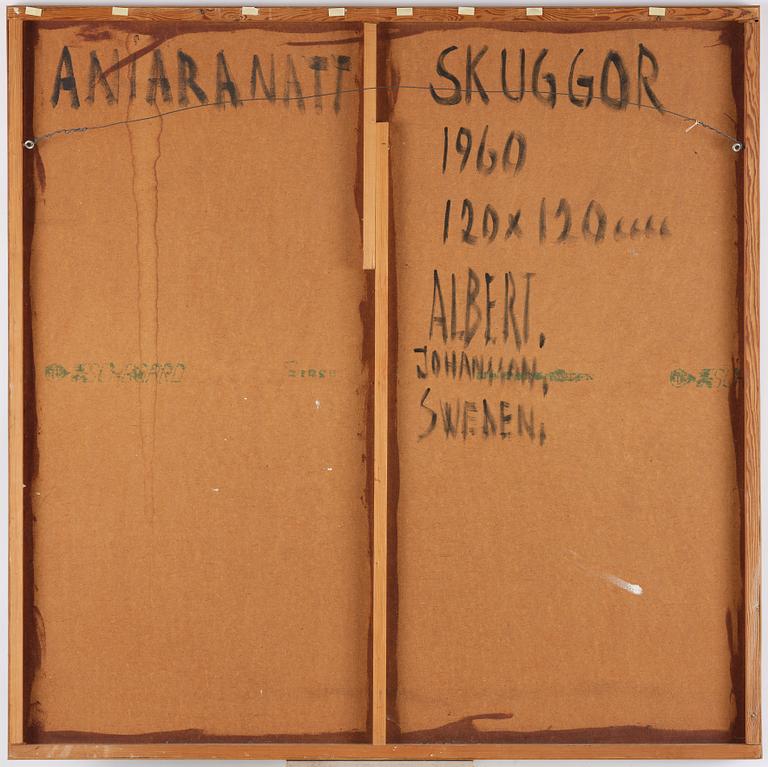 ANIARANATT SKUGGOR
1960
120x120cm
ALBERT.
JOHANSSON,
SWEDEN,